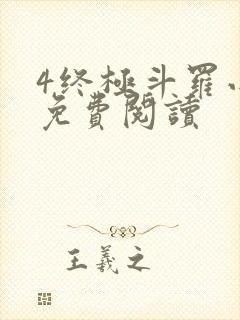 4终極斗羅小
免費閱讀
王羲之